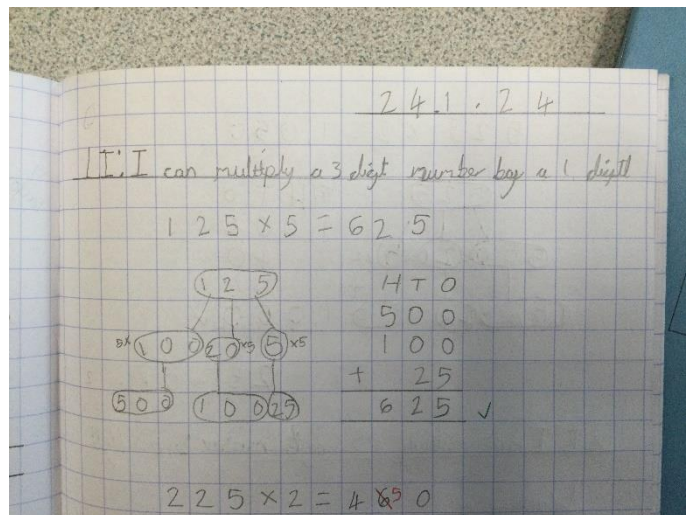 24.1.24
LI: I can multiply a 3 digit number by a 1 digit
125 × 5 = 625
125
5× 100 20 ×5 5 ×5
500 100 25
H T O
500
100
+ 25
625 ✓
225 × 2 = 4 5 0